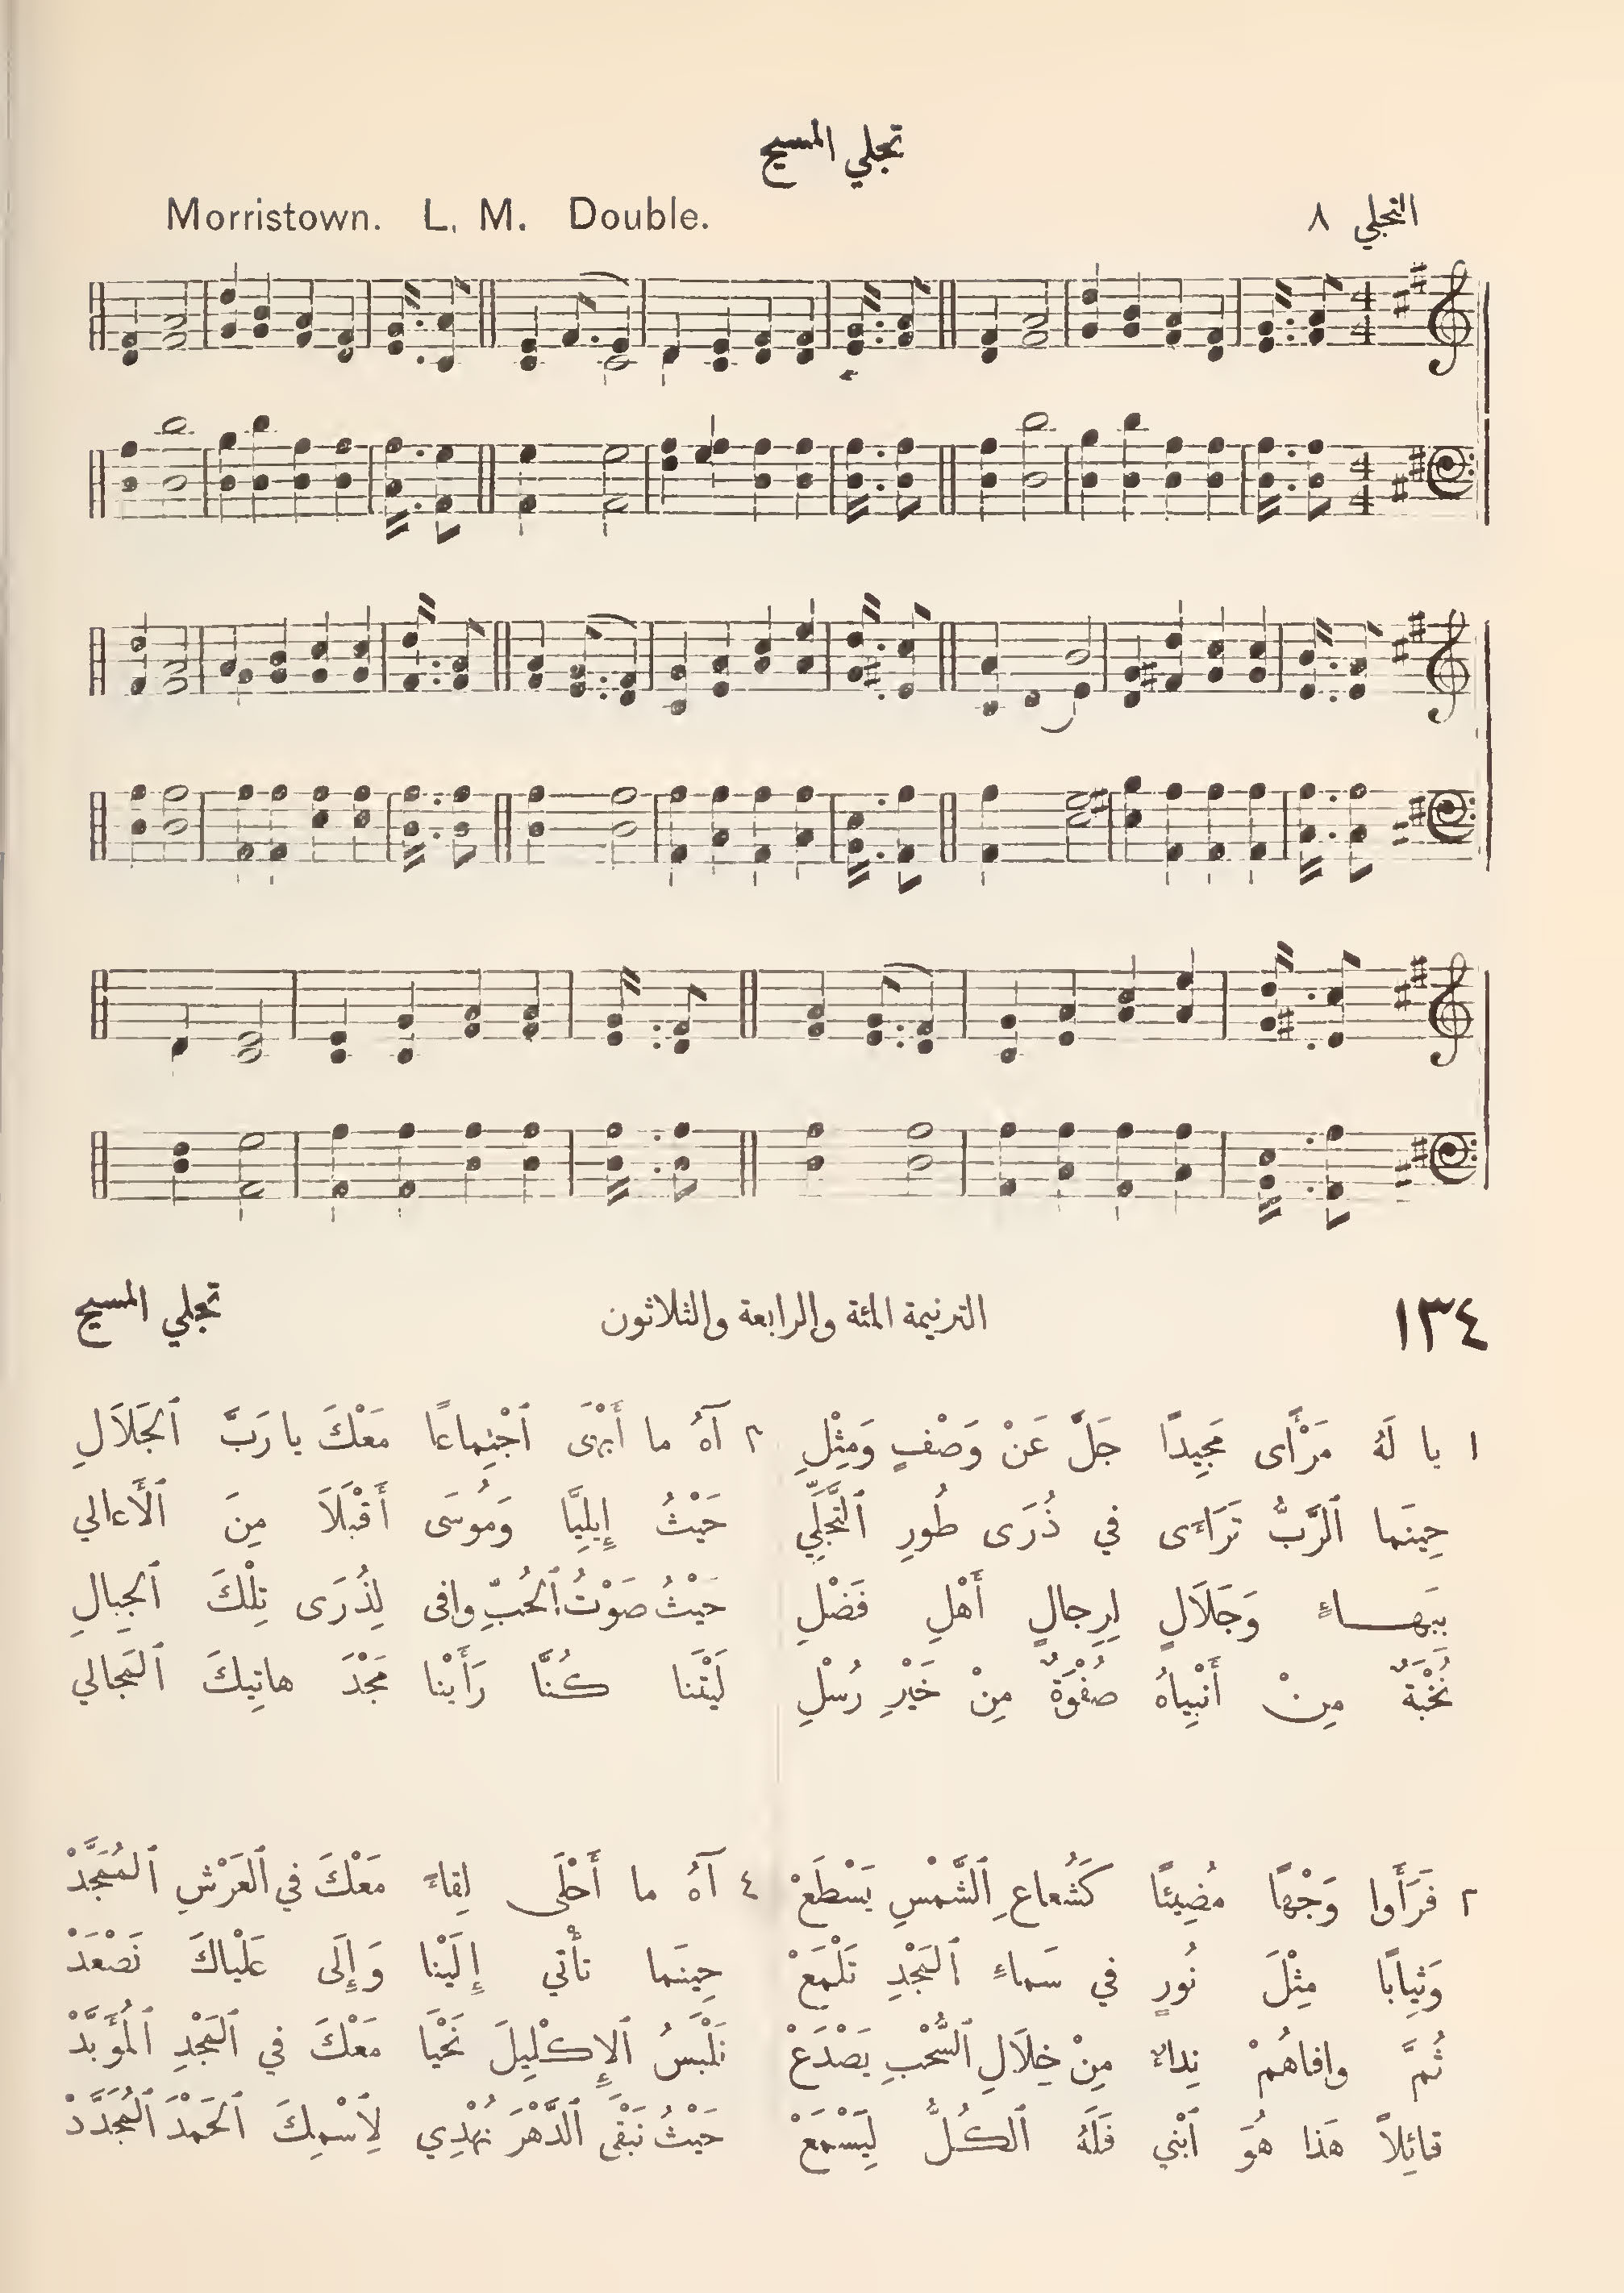 تجلي المسيح
Morristown. L. M. Double.
التجلي ٨
١٣٤
الترنيمة المئة والرابعة والثلاثون
تجلي المسيح
١ يا لَهُ مَرْأًى مَجِيدًا جَلَّ عَنْ وَصْفٍ وَمِثْلِ
حِينَما ٱلرَّبُّ تَرَاءَى في ذُرَى طُورِ ٱلتَّجَلِّي
بِبَهاءٍ وَجَلَالٍ لِرِجالٍ أَهْلِ فَضْلِ
نُخْبَةٌ مِنْ أَنْبِياهُ صُفْوَةٌ مِنْ خَيْرِ رُسْلِ
٢ آهُ ما أَبْهَى ٱجْتِماعًا مَعْكَ يا رَبَّ ٱلجَلَالِ
حَيْثُ إِيلِيَّا وَمُوسَى أَقْبَلَا مِنَ ٱلْأَعالي
حَيْثُ صَوْتُ ٱلحُبِّ وافى لِذُرَى تِلْكَ ٱلجِبالِ
لَيْتَنا كُنَّا رَأَيْنا مَجْدَ هاتِيكَ ٱلمَجالي
٣ فَرَأَوا وَجْهًا مُضِيئًا كَشُعاعِ ٱلشَّمْسِ يَسْطَعْ
وَثِيابًا مِثْلَ نُورٍ في سَماءِ ٱلمَجْدِ تَلْمَعْ
ثُمَّ وافاهُمْ نِداءٌ مِنْ خِلَالِ ٱلسُّحْبِ يَصْدَعْ
قائِلاً هَذا هُوَ ٱبْني فَلَهُ ٱلكُلُّ لِيَسْمَعْ
٤ آهُ ما أَحْلَى لِقاءً مَعْكَ في ٱلعَرْشِ ٱلمُمَجَّدْ
حِينَما تأْتي إِلَيْنا وَإِلَى عَلْياكَ نَصْعَدْ
نَلْبَسُ ٱلإِكْلِيلَ نَحْيَا مَعْكَ في ٱلمَجْدِ ٱلمُؤَبَّدْ
حَيْثُ نَبْقَى ٱلدَّهْرَ نُهْدِي لِٱسْمِكَ ٱلحَمْدَ ٱلمُجَدَّدْ